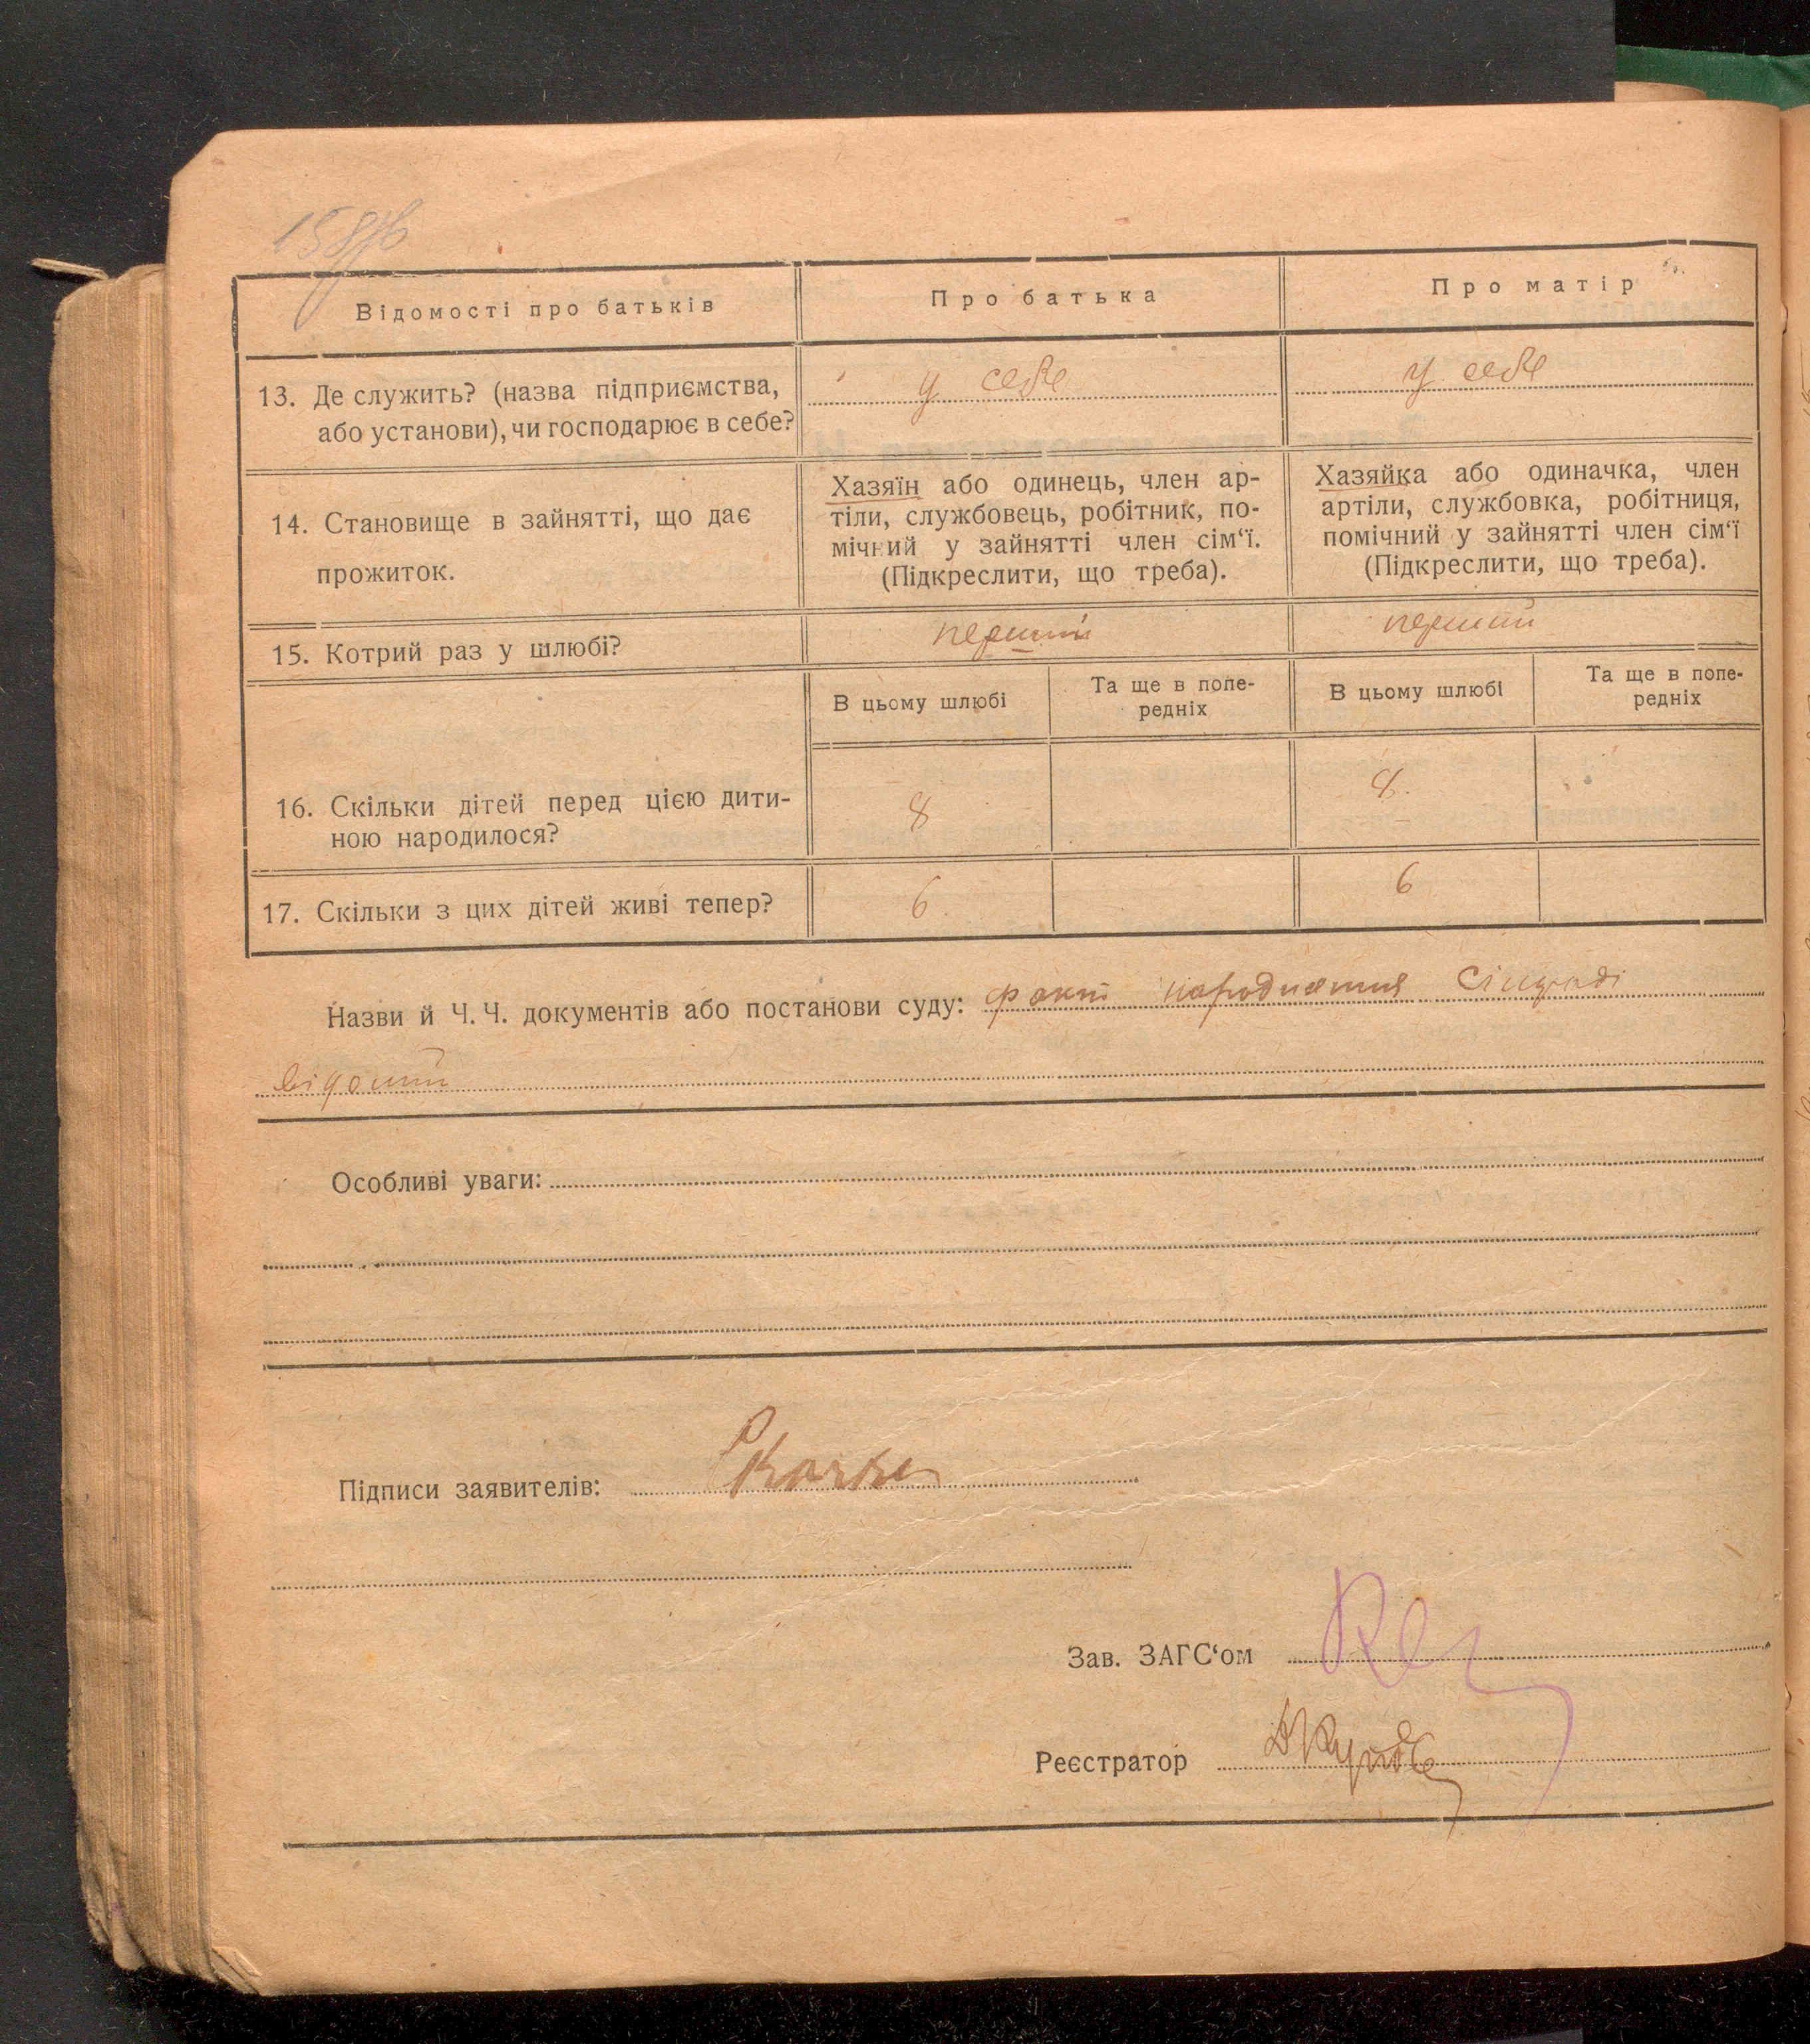 Відомості про батьків
Про батька
Про матір
13. Де служить? (назва підприємства,
або установи), чи господарює в себе?
у себе
у себе
14. Становище в зайнятті, що дає
прожиток.
Хазяїн або одинець, член ар-
тіли, службовець, робітник, по-
мічний у зайнятті член сім‘ї.
(Підкреслити, що треба).
Хазяйка або одиначка, член
артіли, службовка, робітниця,
помічний у зайнятті член сім‘ї
(Підкреслити, що треба).
15. Котрий раз у шлюбі?
перший
перший
В цьому шлюбі
Та ще в попе-
редніх
В цьому шлюбі
Та ще в попе-
редніх
16. Скільки дітей перед цією дити-
ною народилося?
8
8.
17. Скільки з цих дітей живі тепер?
6.
6
Назви й Ч. Ч. документів або постанови суду: факт народження сільраді
відомий
Особливі уваги:
Підписи заявителів:
Зав. ЗАГС‘ом
Реєстратор